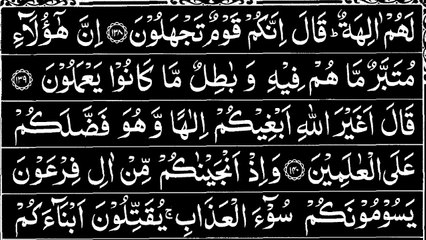 لَهُمْ اٰلِهَةٌ ؕ قَالَ اِنَّكُمْ قَوْمٌ تَجْهَلُوْنَ ﴿۱۳۸﴾ اِنَّ هٰۤؤُلَآءِ
مُتَبَّرٌ مَّا هُمْ فِيْهِ وَ بٰطِلٌ مَّا كَانُوْا يَعْمَلُوْنَ ﴿۱۳۹﴾
قَالَ اَغَيْرَ اللّٰهِ اَبْغِيْكُمْ اِلٰهًا وَّ هُوَ فَضَّلَكُمْ
عَلَى الْعٰلَمِيْنَ ﴿۱۴۰﴾ وَ اِذْ اَنْجَيْنٰكُمْ مِّنْ اٰلِ فِرْعَوْنَ
يَسُوْمُوْنَكُمْ سُوْٓءَ الْعَذَابِ ۚ يُقَتِّلُوْنَ اَبْنَآءَكُمْ